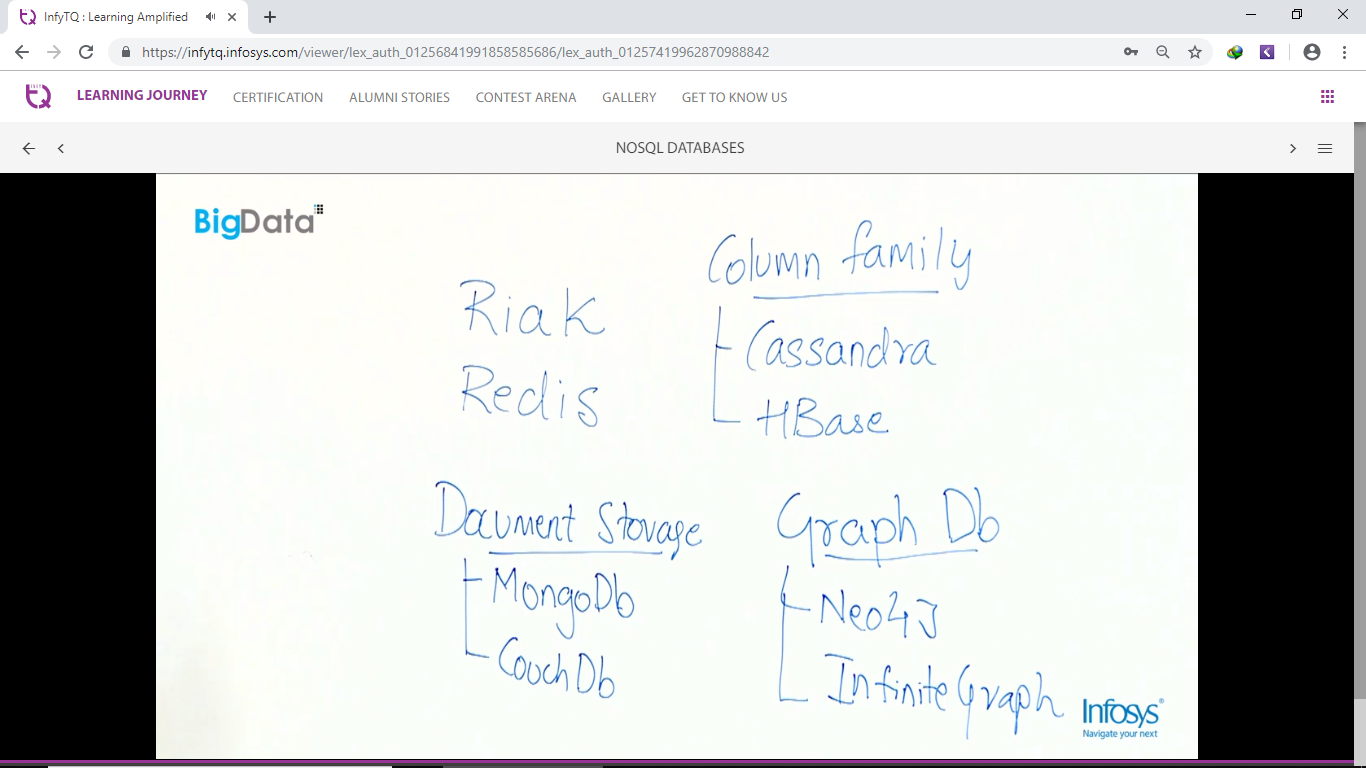 InfyTQ : Learning Amplified
https://infytq.infosys.com/viewer/lex_auth_01256841991858585686/lex_auth_01257419962870988842
LEARNING JOURNEY CERTIFICATION ALUMNI STORIES CONTEST ARENA GALLERY GET TO KNOW US
NOSQL DATABASES
BigData
Riak
Redis
Column family
Cassandra
HBase
Document Storage
MongoDb
CouchDb
Graph Db
Neo4J
InfiniteGraph
Infosys®
Navigate your next